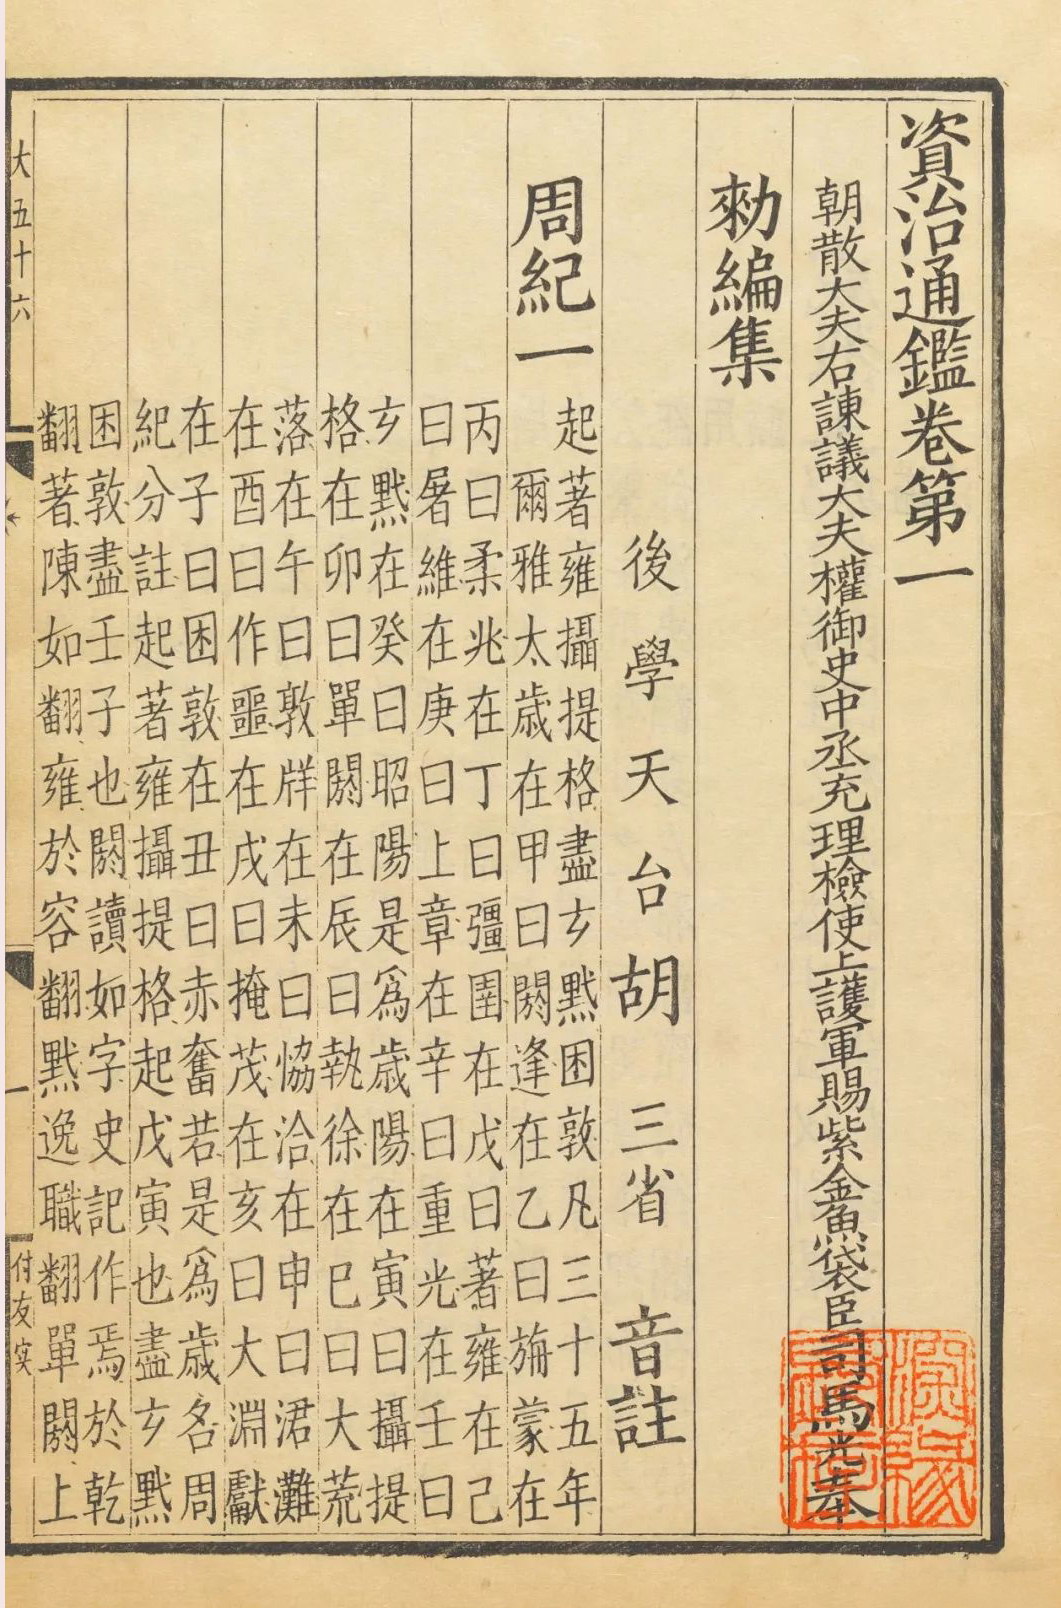 資治通鑑卷第一
朝散大夫右諫議大夫權御史中丞充理檢使上護軍賜紫金魚袋臣司馬光奉
勑編集
後學天台胡三省音註
周紀一
起著雍攝提格盡玄黓困敦凡三十五年
爾雅太歳在甲曰閼逢在乙曰旃蒙在
丙曰柔兆在丁曰彊圉在戊曰著雍在己
曰屠維在庚曰上章在辛曰重光在壬曰
玄黓在癸曰昭陽是爲歳陽在寅曰攝提
格在卯曰單閼在辰曰執徐在巳曰大荒
落在午曰敦牂在未曰協洽在申曰涒灘
在酉曰作噩在戌曰掩茂在亥曰大淵獻
在子曰困敦在丑曰赤奮若是爲歳名周
紀分註起著雍攝提格起戊寅也盡玄黓
困敦盡壬子也閼讀如字史記作焉於乾
翻著陳如翻雍於容翻黓逸職翻單閼上
大五十六
一
付友実